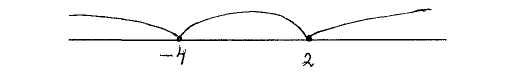 -4 2